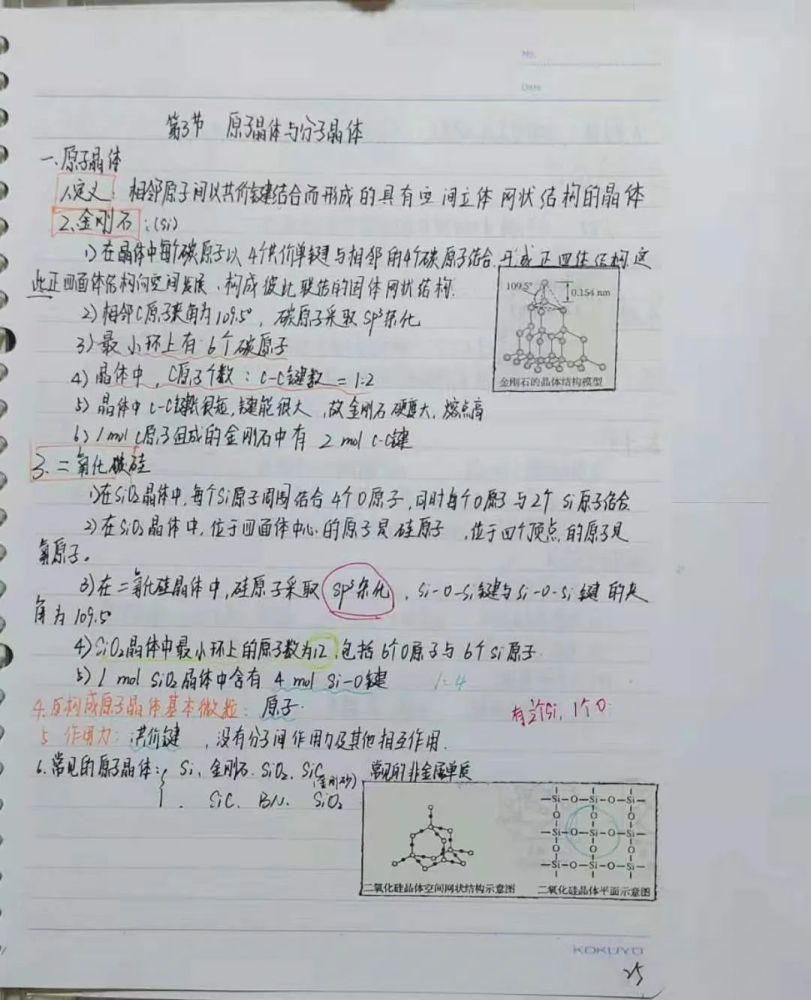 No.
Date
第3节 原子晶体与分子晶体
一、原子晶体
1.定义: 相邻原子间以共价键结合而形成的具有空间立体网状结构的晶体
2.金刚石:(Si)
1)在晶体中每个碳原子以4个共价单键与相邻的4个碳原子结合,形成正四体结构,这
些正四面体结构向空间发展,构成彼此联结的固体网状结构.
109.5° 0.154 nm
2)相邻C原子夹角为109.5°,碳原子采取sp³杂化
3)最小环上有6个碳原子
4)晶体中,C原子个数:C-C键数=1:2
金刚石的晶体结构模型
5)晶体中C-C键长很短,键能很大,故金刚石硬度大,熔点高
6)1mol C原子组成的金刚石中有2mol C-C键
3.二氧化硅
1)在SiO₂晶体中,每个Si原子周围结合4个O原子,同时每个O原子与2个Si原子结合
2)在SiO₂晶体中,位于四面体中心的原子是硅原子,位于四个顶点的原子是
氧原子。
3)在二氧化硅晶体中,硅原子采取sp³杂化,Si-O-Si键与Si-O-Si键的夹
角为109.5°
4)SiO₂晶体中最小环上的原子数为12,包括6个O原子与6个Si原子
5)1mol SiO₂晶体中含有4mol Si-O键 1=4
4.构成原子晶体基本微粒:原子. 有½个Si,1个O
5 作用力:共价键,没有分子间作用力及其他相互作用.
6.常见的原子晶体: Si、金刚石、SiO₂、SiC(金刚砂) 常见的非金属单质
SiC、BN、SiO₂
—Si—O—Si—O—Si—
O O O
—Si—O—Si—O—Si—
O O O
—Si—O—Si—O—Si—
二氧化硅晶体空间网状结构示意图 二氧化硅晶体平面示意图
KOKUYO
25